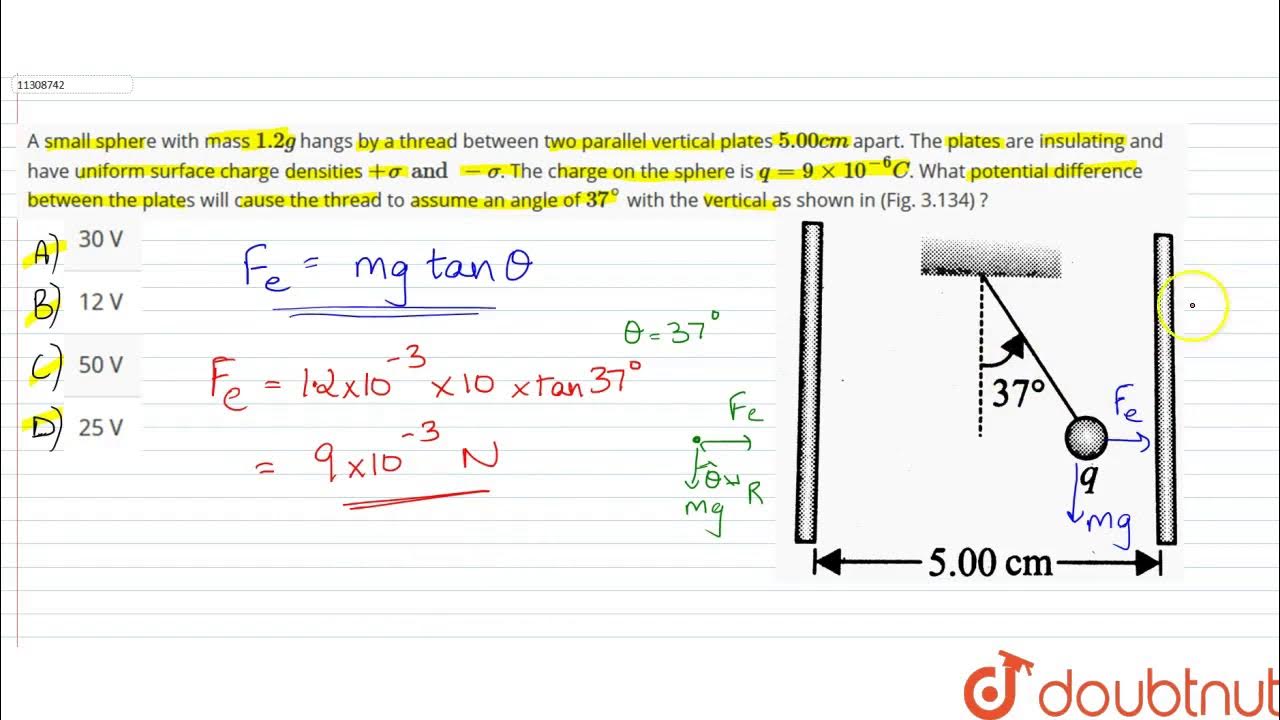 11308742
A small sphere with mass 1.2g hangs by a thread between two parallel vertical plates 5.00cm apart. The plates are insulating and
have uniform surface charge densities +σ and −σ. The charge on the sphere is q = 9 × 10⁻⁶C. What potential difference
between the plates will cause the thread to assume an angle of 37° with the vertical as shown in (Fig. 3.134) ?
A) 30 V
B) 12 V
C) 50 V
D) 25 V
Fe = mg tanθ
θ = 37°
Fe = 1.2×10⁻³ × 10 × tan 37°
= 9×10⁻³ N
Fe
θ
R
mg
37°
Fe
q
mg
5.00 cm
doubtnut